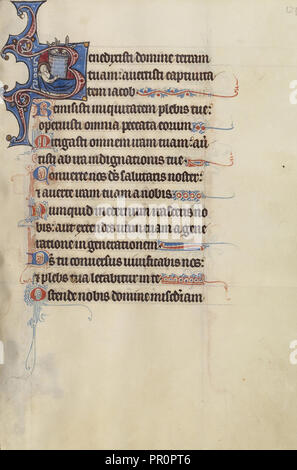 Benedixisti domine terram
tuam: avertisti captivita
tem iacob.
Remisisti iniquitatem plebis tue:
operuisti omnia peccata eorum.
Mitigasti omnem iram tuam: aū
tisti ab ira indignationis tue.
Converte nos ds̄ salutaris noster:
et averte iram tuam a nobis.
Nunquid in eternum irasceris no
bis: aut extendes iram tuam a gene
ratione in generationem.
Ds̄ tu conversus vivificabis nos:
et plebs tua letabitur in te.
Ostende nobis domine misc̄diam
alamy
PR0PT6